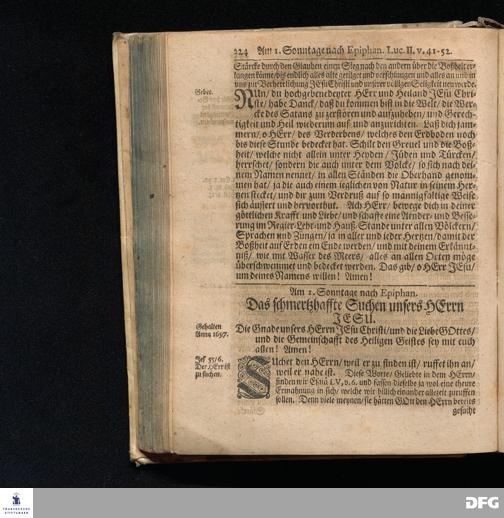 224 Am 1. Sonntage nach Epiphan. Luc. II. v. 41-52.
Stärcke durch den Glauben einen Sieg nach den andern über die Boßheit er-
langen könne/ biß endlich alles alte getilget und verschlungen und alles an und in
uns zur Verherrlichung JEsu Christi und unserer völligen Seligkeit neu werde.
Gebet.
NUn/ du hochgebenedeyter HErr und Heiland JEsu Chri-
ste/ habe Danck/ daß du kommen bist in die Welt/ die Wer-
cke des Satans zu zerstören und aufzuheben/ und Gerech-
tigkeit und Heil wiederum auf und anzurichten. Laß dich jam-
mern/ o HErr/ des Verderbens/ welches den Erdboden noch
bis diese Stunde bedecket hat. Schilt den Greuel und die Boß-
heit/ welche nicht allein unter Heyden/ Jüden und Türcken/
herrschet/ sondern die auch unter dem Volcke/ so sich nach dei-
nem Namen nennet/ in allen Ständen die Oberhand genom-
men hat/ ja die auch einem ieglichen von Natur in seinem Her-
tzen stecket/ und dir zum Verdruß auf so mannigfaltige Weise
sich äusert und hervorthut. Ach HErr/ bewege dich in deiner
göttlichen Krafft und Liebe/ und schaffe eine Aender- und Besse-
rung im Regier-Lehr-und Hauß-Stande unter allen Völckern/
Sprachen und Zungen/ ja in aller und ieder Hertzen/ damit der
Boßheit auf Erden ein Ende werden/ und mit deinem Erkännt-
nuß/ wie mit Wasser des Meers/ alles an allen Orten möge
überschwemmet und bedecket werden. Das gib/ o HErr JEsu/
um deines Namens willen! Amen!
Am 1. Sonntage nach Epiphan.
Das schmertzhaffte Suchen unsers HErrn
JESU.
Gehalten
Anno 1697.
Die Gnade unsers HErrn JEsu Christi/ und die Liebe GOttes/
und die Gemeinschafft des Heiligen Geistes sey mit euch
allen! Amen!
Jes. 55/6.
Der HErr ist
zu suchen.
SUchet den HErrn/ weil er zu finden ist/ ruffet ihn an/
weil er nahe ist. Diese Worte/ Geliebte in dem HErrn/
finden wir Esaiä LV, v. 6. und fassen dieselbe in sich wol eine theure
Ermahnung in sich/ welche wir billich einander allezeit zuruffen
sollen. Denn viele meynen/ sie hätten GOtt den HErrn bereits
gesucht
FRANCKESCHE
STIFTUNGEN
DFG